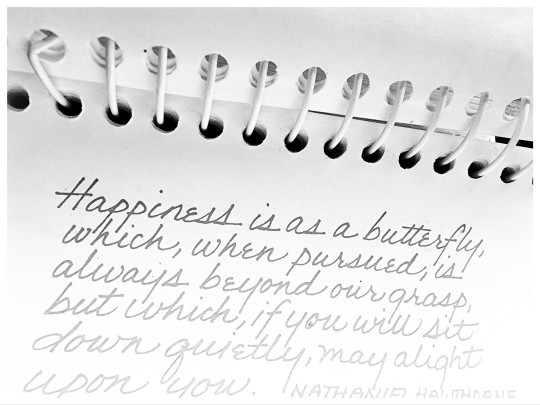 Happiness is as a butterfly,
which, when pursued, is
always beyond our grasp,
but which, if you will sit
down quietly, may alight
upon you. NATHANIEL HAWTHORNE